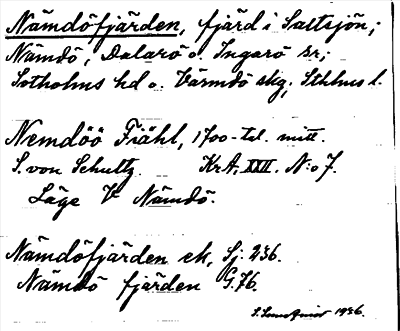 Nämdöfjärden, fjärd i Saltsjön;
Nämdö, Dalarö o. Ingarö sr;
Sotholms hd o. Värmdö skg, Sthlms l.
Nemdöö Fiähl, 1700-tal. mitt.
S. von Schultz. KrA. XXII. N:o 7.
Läge V Nämdö.
Nämdöfjärden ek, Sj. 236.
Nämdö fjärden G.76.
1936.